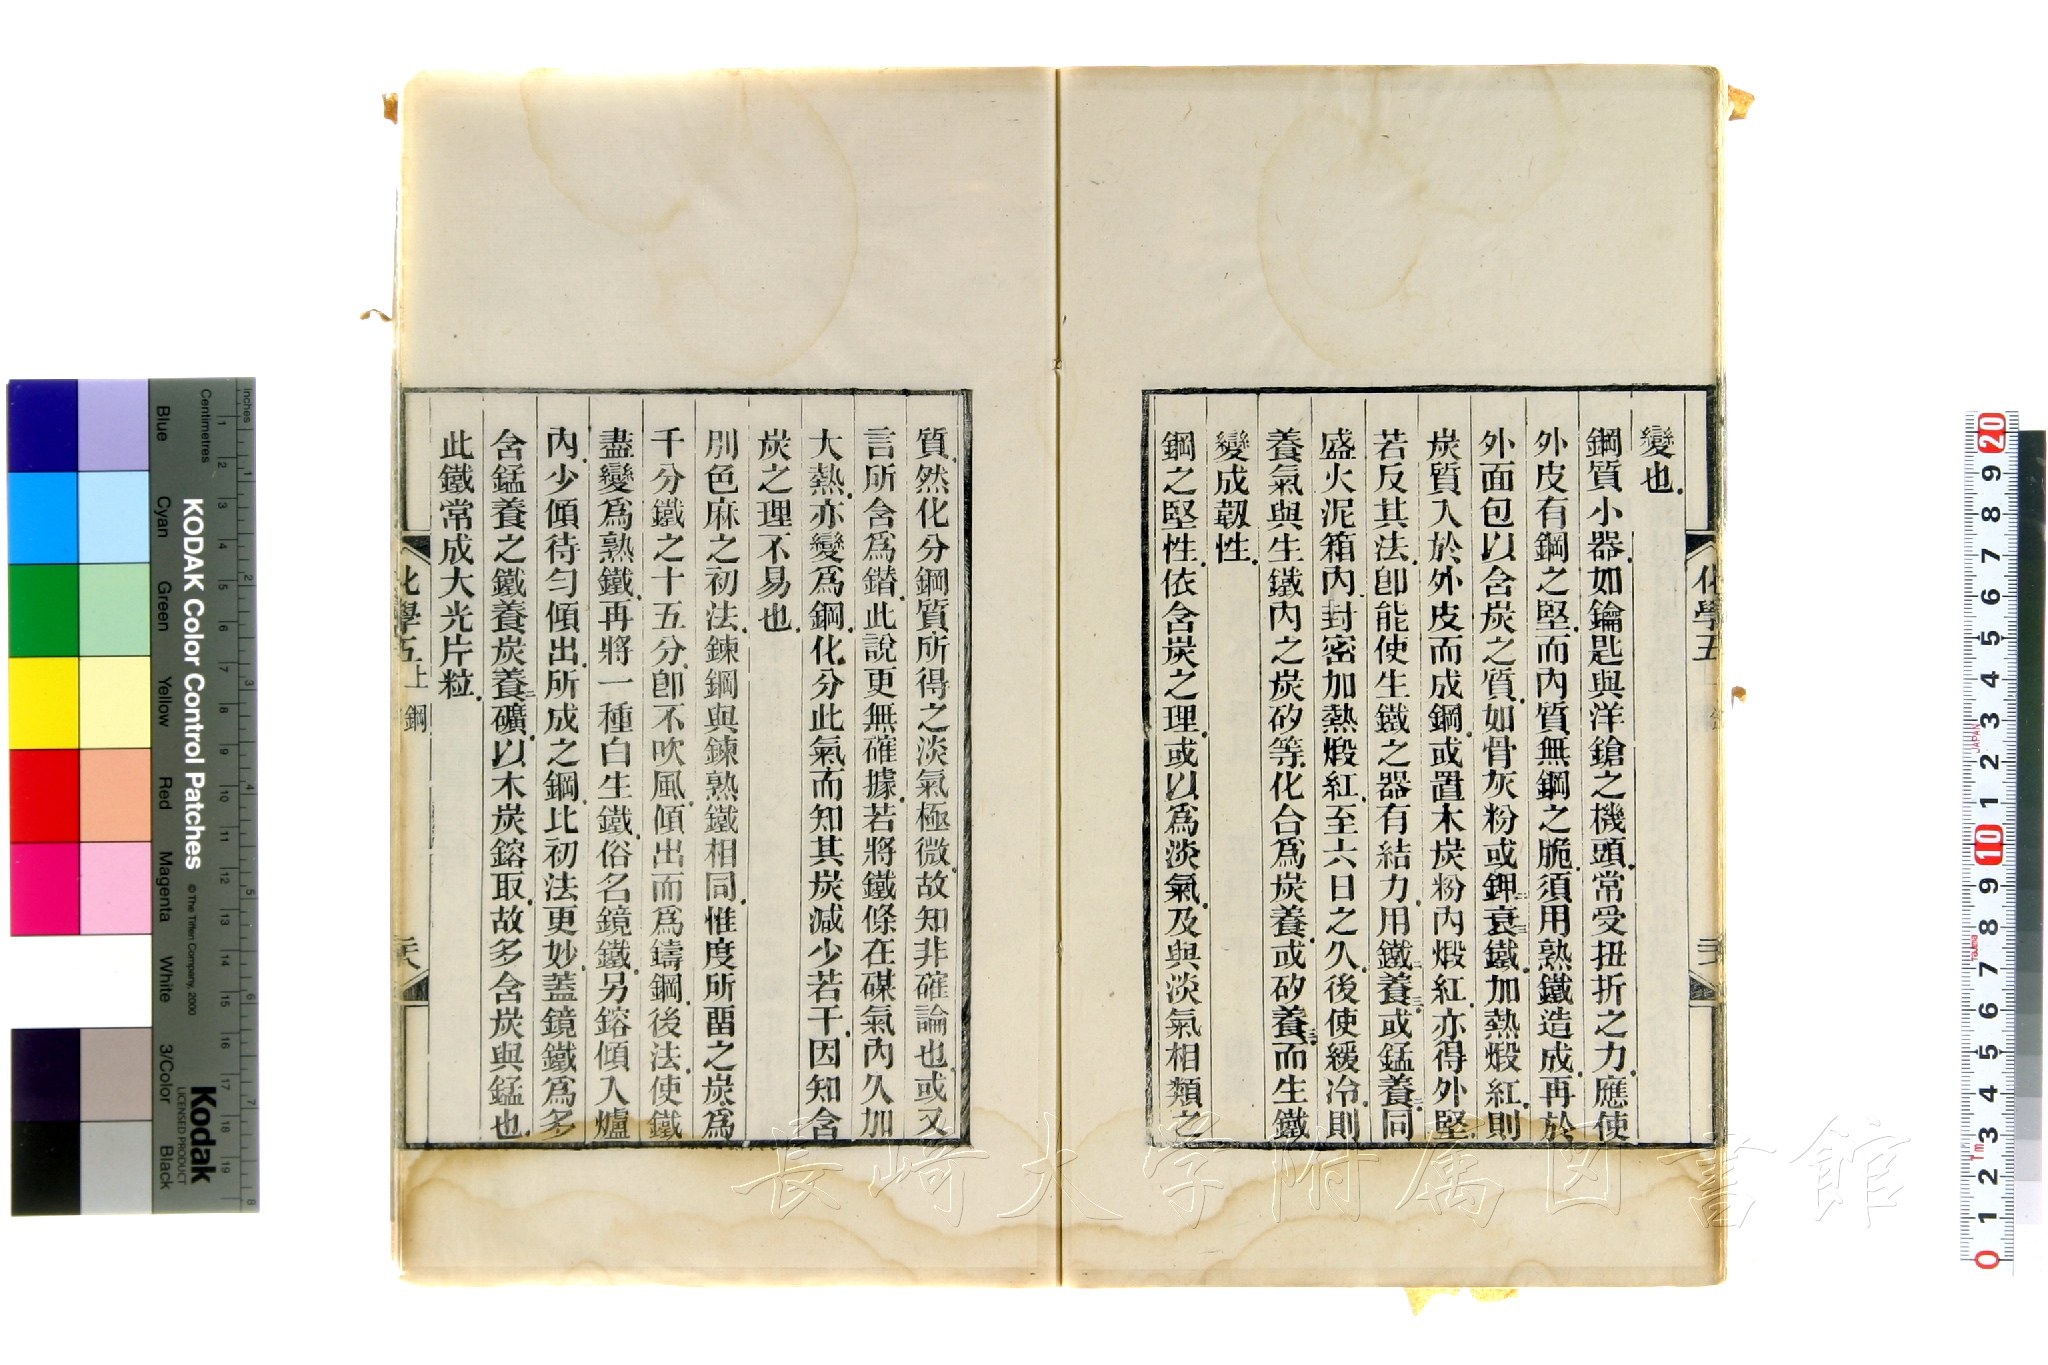 變也.
鋼質小器.如鑰匙與洋鎗之機頭.常受扭折之力.應使
外皮有鋼之堅.而內質無鋼之脆.須用熟鐵造成.再於
外面包以含炭之質.如骨灰粉或鉀衰鐵.加熱煅紅.則
炭質入於外皮而成鋼.或置木炭粉內煅紅.亦得外堅.
若反其法.卽能使生鐵之器有結力.用鐵養或錳養.同
盛火泥箱內.封密加熱煅紅.至六日之久.後使緩冷.則
養氣與生鐵內之炭矽等.化合爲炭養.或矽養.而生鐵
變成韌性.
鋼之堅性.依含炭之理.或以爲淡氣.及與淡氣相類之
化學五
質.然化分鋼質所得之淡氣極微.故知非確論也.或又
言所含爲鍇.此說更無確據.若將鐵條在碟氣內久加
大熱.亦變爲鋼.化分此氣而知其炭減少若干.因知含
炭之理不易也.
別色麻之初法.鍊鋼與鍊熟鐵相同.惟度所畱之炭.爲
千分鐵之十五分.卽不吹風.傾出而爲鑄鋼.後法.使鐵
盡變爲熟鐵.再將一種白生鐵.俗名鏡鐵.另鎔傾入爐
內.少傾待勻傾出.所成之鋼.比初法更妙.蓋鏡鐵爲多
含錳養之鐵養炭養礦.以木炭鎔取.故多含炭與錳也.
此鐵常成大光片粒.
化學五上 鋼
二十八
長崎大学附属図書館
KODAK Color Control Patches
© The Tiffen Company, 2000
Kodak
LICENSED PRODUCT
Blue Cyan Green Yellow Red Magenta White 3/Color Black
Inches 1 2 3 4 5 6 7 8
Centimetres 1 2 3 4 5 6 7 8 9 10 11 12 13 14 15 16 17 18 19
20 9 8 7 6 5 4 3 2 1 10 9 8 7 6 5 4 3 2 1 0
JAPAN
1m